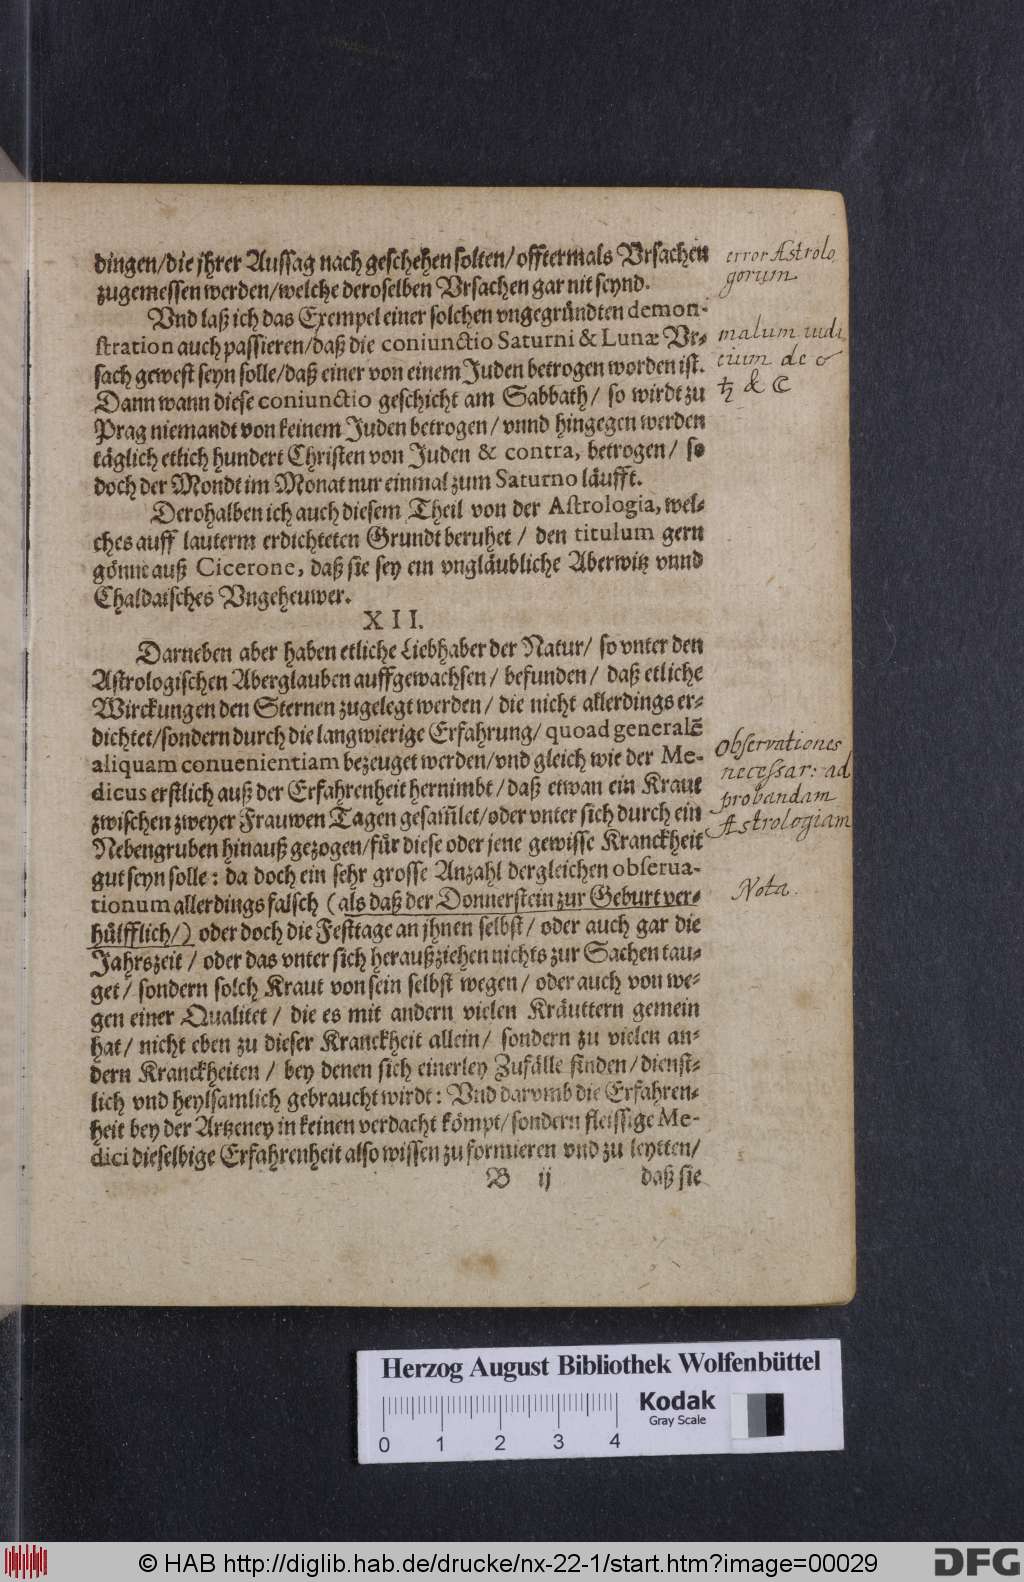 dingen/die jhrer Aussag nach geschehen solten/ offtermals Vrsachen
zugemessen werden/welche deroselben Vrsachen gar nit seynd.
Vnd laß ich das Exempel einer solchen vngegründten demon-
stration auch passieren/daß die coniunctio Saturni & Lunæ Vr-
sach gewest seyn solle/daß einer von einem Juden betrogen worden ist.
Dann wann diese coniunctio geschicht am Sabbath/ so wirdt zu
Prag niemandt von keinem Juden betrogen/ vnnd hingegen werden
täglich etlich hundert Christen von Juden & contra, betrogen/ so
doch der Mondt im Monat nur einmal zum Saturno läufft.
Derohalben ich auch diesem Theil von der Astrologia, wel-
ches auff lauterm erdichteten Grundt beruhet/ den titulum gern
gönne auß Cicerone, daß sie sey ein vngläubliche Aberwitz vnnd
Chaldaisches Vngeheuwer.
XII.
Darneben aber haben etliche Liebhaber der Natur/ so vnter den
Astrologischen Aberglauben auffgewachsen/ befunden/ daß etliche
Wirckungen den Sternen zugelegt werden/ die nicht allerdings er-
dichtet/sondern durch die langwierige Erfahrung/ quoad generalẽ
aliquam conuenientiam bezeuget werden/vnd gleich wie der Me-
dicus erstlich auß der Erfahrenheit hernimbt/ daß etwan ein Kraut
zwischen zweyer Frauwen Tagen gesam̃let/oder vnter sich durch ein
Nebengruben hinauß gezogen/für diese oder jene gewisse Kranckheit
gut seyn solle: da doch ein sehr grosse Anzahl dergleichen obserua-
tionum allerdings falsch (als daß der Donnerstein zur Geburt ver-
hülfflich/) oder doch die Festtage an jhnen selbst/ oder auch gar die
Jahrszeit/ oder das vnter sich heraußziehen nichts zur Sachen tau-
get/ sondern solch Kraut von sein selbst wegen/ oder auch von we-
gen einer Qualitet/ die es mit andern vielen Kräuttern gemein
hat/ nicht eben zu dieser Kranckheit allein/ sondern zu vielen an-
dern Kranckheiten/ bey denen sich einerley Zufälle finden/dienst-
lich vnd heylsamlich gebraucht wirdt: Vnd darvmb die Erfahren-
heit bey der Artzeney in keinen verdacht kömpt/sondern fleissige Me-
dici dieselbige Erfahrenheit also wissen zu formieren vnd zu leytten/
B ij daß sie
error Astrolo
gorum
malum iudi
cium de ☌
♄ & ☾
Observationes
necessar: ad
probandam
Astrologiam
Nota.
Herzog August Bibliothek Wolfenbüttel
Kodak
Gray Scale
0 1 2 3 4
© HAB http://diglib.hab.de/drucke/nx-22-1/start.htm?image=00029
DFG